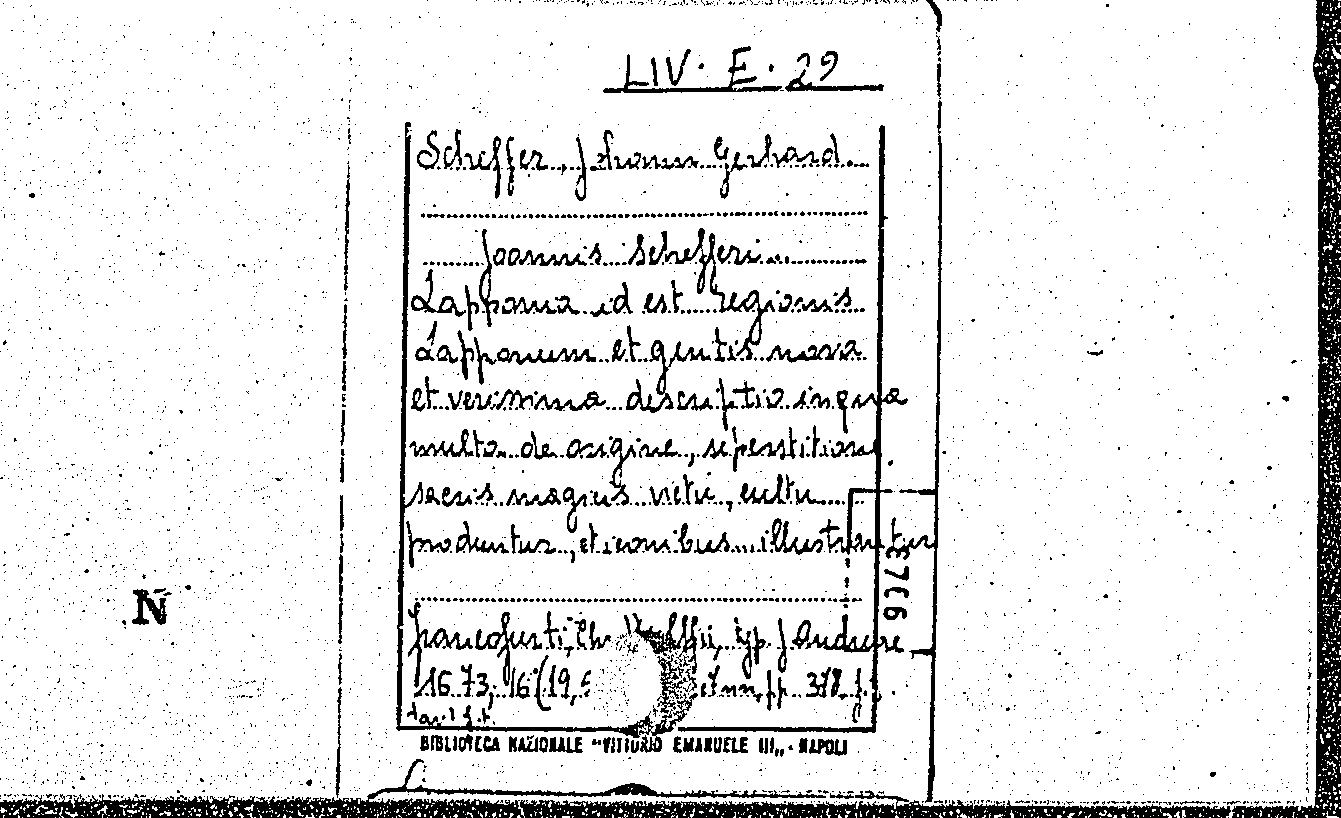 LIV. E. 29
Scheffer, Johann Gerhard.
Joannis Schefferi...
Lapponia id est regionis
Lapponum et gentis nova
et verissima descriptio in qua
multa de origine, superstitione
sacris magicis victu, cultu
produntur, et iconibus illustrantur
N
Francofurti, Chr. Wolffii, typ. J. Andreae
1673, 16 (19,5 pp. 378. f.
tav. 1 f.t.
BIBLIOTECA NAZIONALE "VITTORIO EMANUELE III„ - NAPOLI